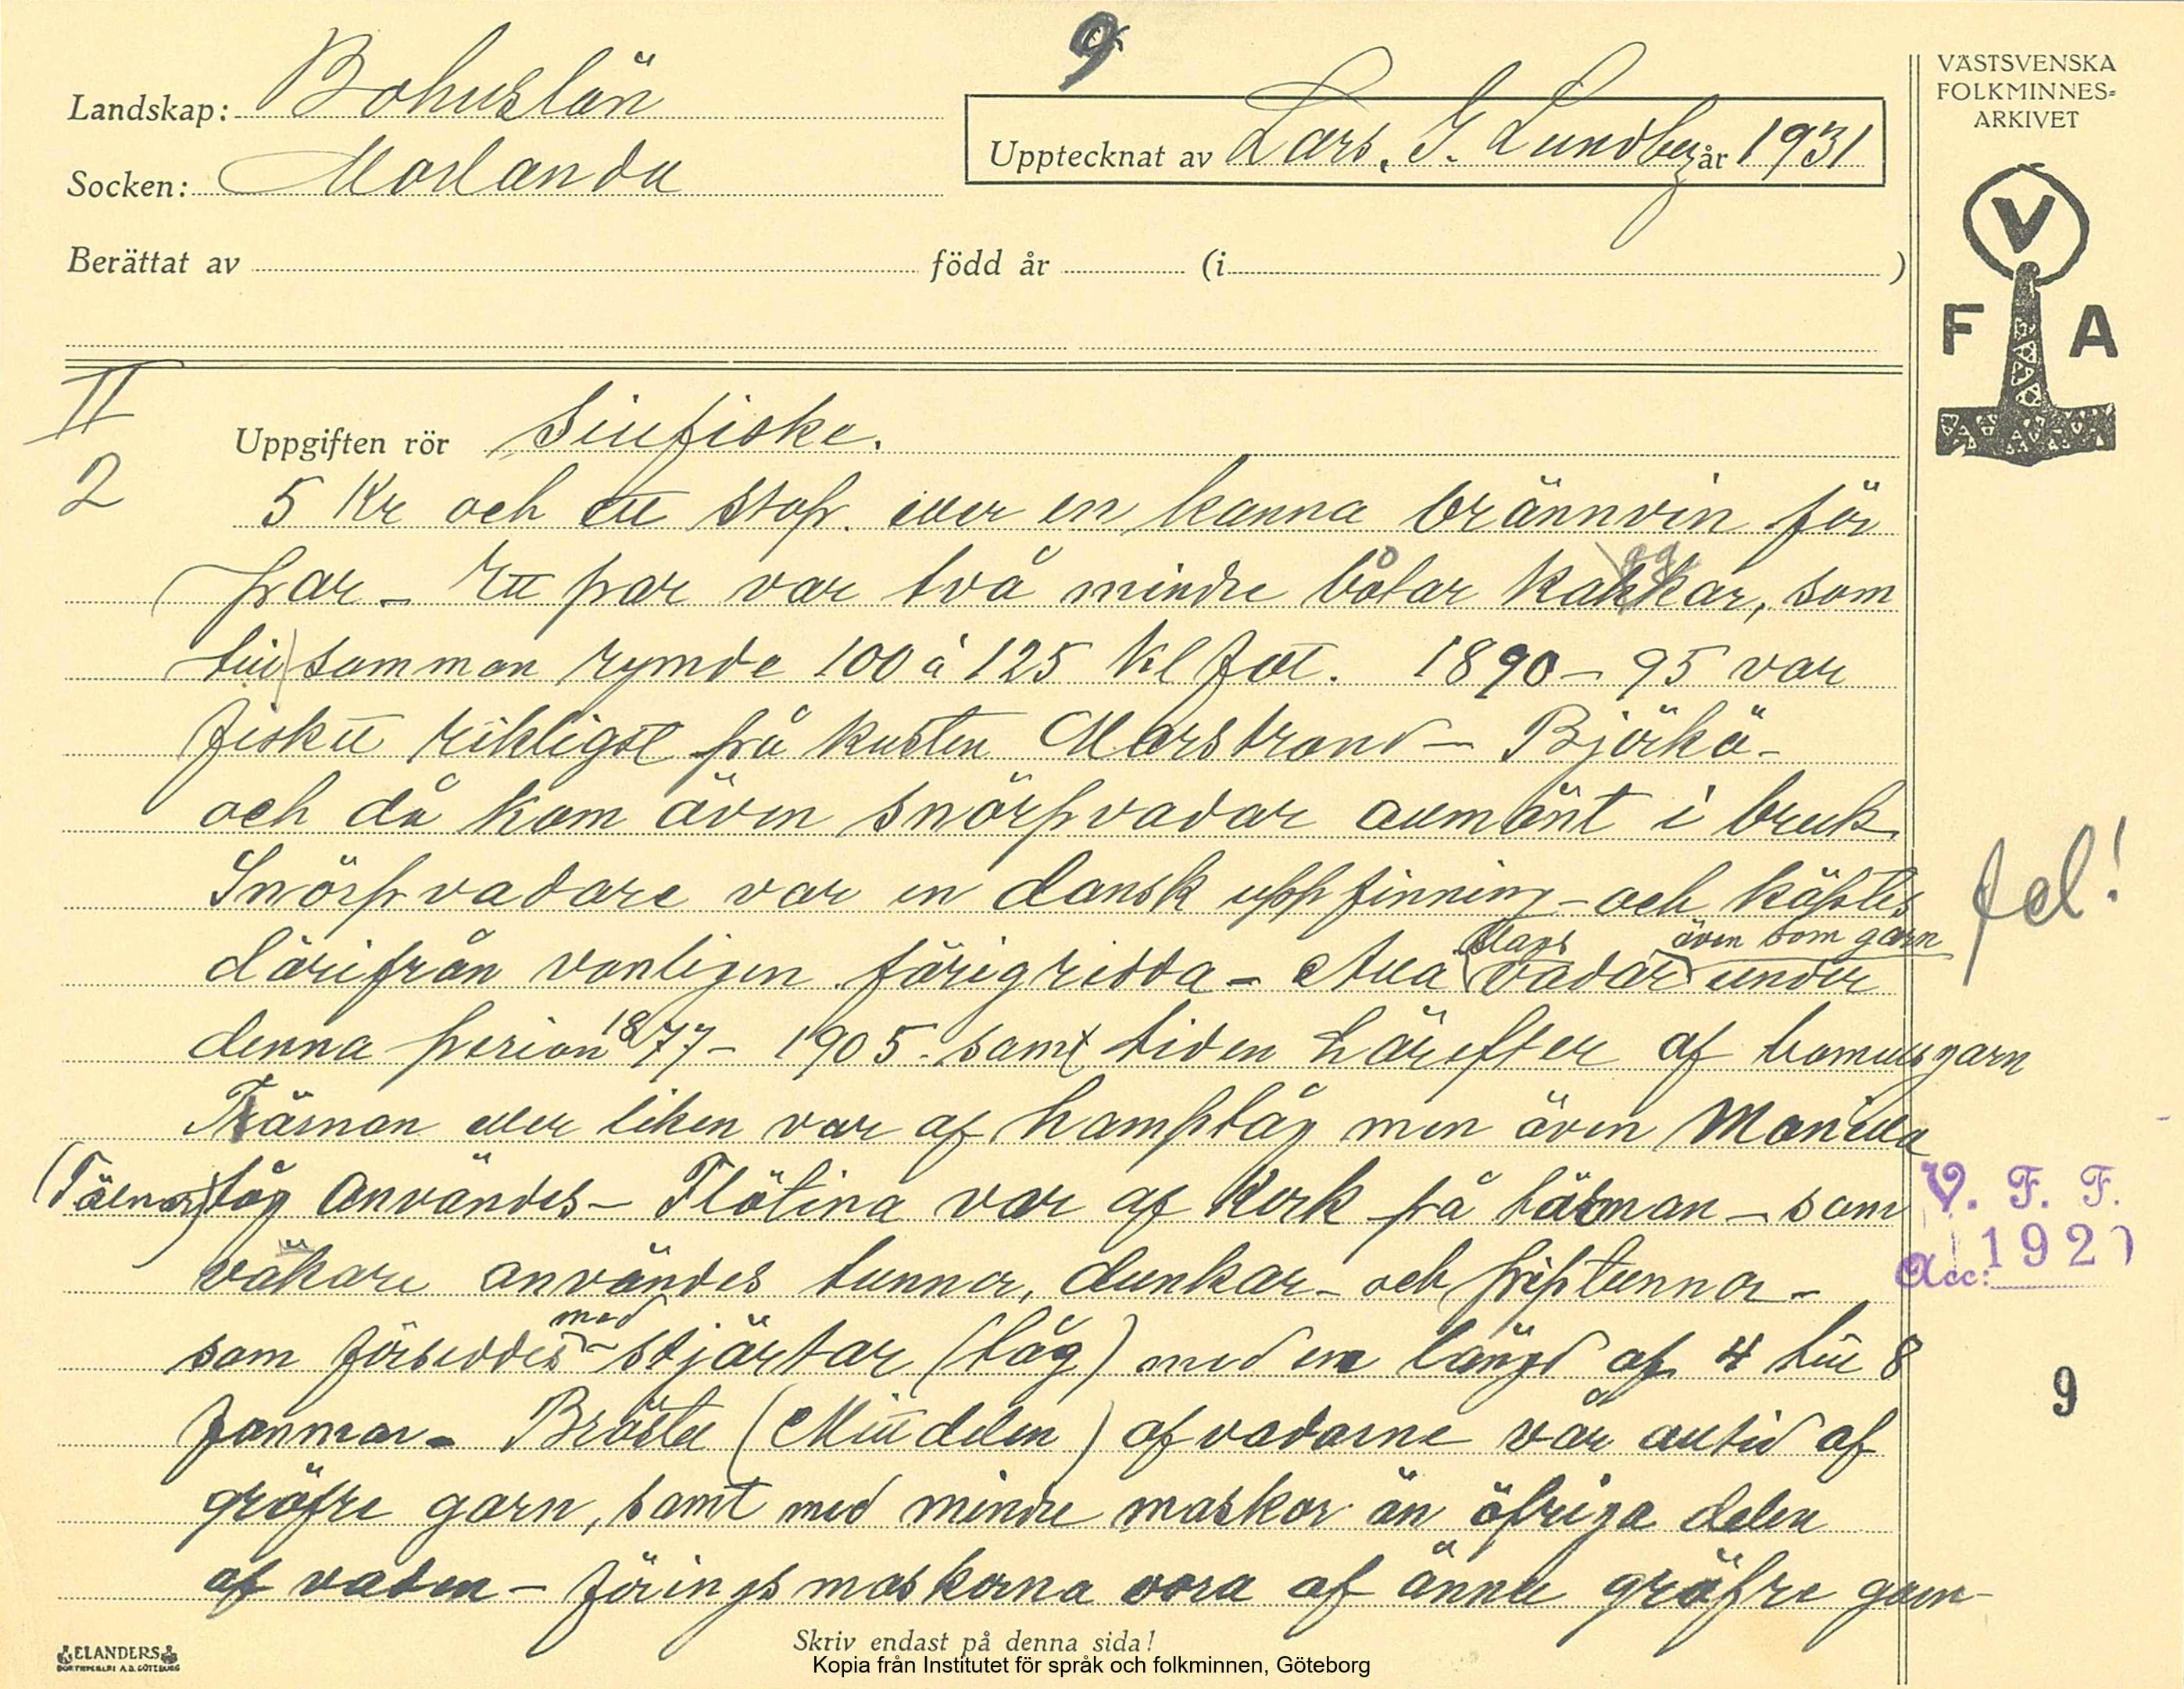 9
Landskap: Bohuslän
Socken: Morlanda
Upptecknat av Lars. J. Lundberg år 1931
Berättat av född år (i )
VÄSTSVENSKA
FOLKMINNES-
ARKIVET
V
F A
II
2
Uppgiften rör Sillfiske.
5 Kr och ett stop. eller en kanna brännvin för
par – Ett par var två mindre båtar kakkar, som
till sammman rymde 100 à 125 kl fot. 1890 – 95 var
fisket rikligst på kusten Marstrand – Björkö –
och då kom även snörpvadar allmänt i bruk
Snörpvadare var en dansk uppfinning – och köptes
fel!
slags även som garn
därifrån vanligen färigridda – Alla vadar under
denna period 1877 – 1905 – samt tiden härefter af bomullsgarn
Tärnan eller liken var af hamptåg men även Manilla
(Tälnar) tåg användes – Flötina var af Kork på tälnan – som
V. F. F.
väkare användes tunnor, dunkar – och piptunnor –
Acc: 1927
med
som försiddes – stjärtar (tåg) med en längd af 4 till 8
famnar – Bröstet (Midddelen) af vadarne var alltid af
9
gröfre garn, samt med mindre maskor än öfriga delen
af vaden – föringsmaskorna vora af ännu gröfre garn –
ELANDERS
BOKTRYCKERI A.B. GÖTEBORG
Skriv endast på denna sida!
Kopia från Institutet för språk och folkminnen, Göteborg